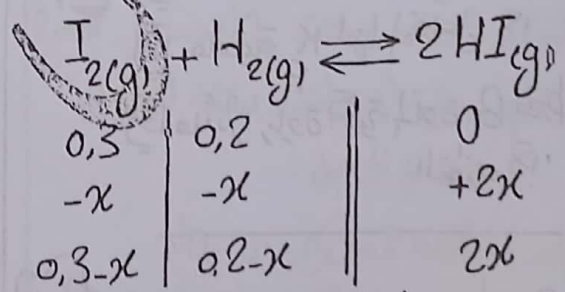 I₂(g) + H₂(g) ⇌ 2HI(g)
0,3 0,2 0
-x -x +2x
0,3-x 0,2-x 2x